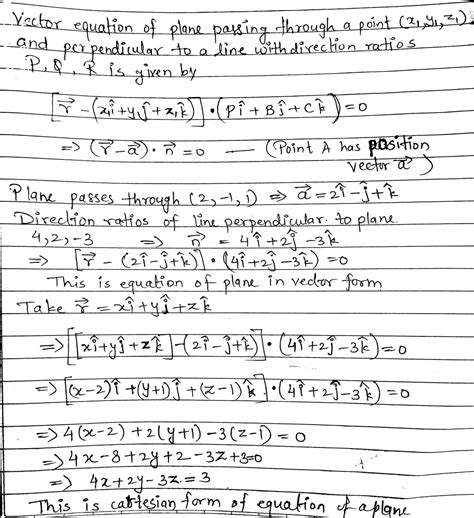 Vector equation of plane passing through a point (x₁,y₁,z₁)
and perpendicular to a line with direction ratios
P, Q, R is given by
[r⃗ - (x₁î+y₁ĵ+z₁k̂)] • (Pî + Bĵ + Ck̂) = 0
=> (r⃗ - a⃗) • n⃗ = 0 — (Point A has position
vector a⃗)
Plane passes through (2,-1,1) => a⃗ = 2î - ĵ + k̂
Direction ratios of line perpendicular to plane.
4, 2, -3 => n⃗ = 4î + 2ĵ - 3k̂
=> [r⃗ - (2î - ĵ + k̂)] • (4î + 2ĵ - 3k̂) = 0
This is equation of plane in vector form
Take r⃗ = xî + yĵ + zk̂
=> [[xî + yĵ + zk̂] - (2î - ĵ + k̂)] • (4î + 2ĵ - 3k̂) = 0
=> [(x-2)î + (y+1)ĵ + (z-1)k̂] • (4î + 2ĵ - 3k̂) = 0
=> 4(x-2) + 2(y+1) - 3(z-1) = 0
=> 4x - 8 + 2y + 2 - 3z + 3 = 0
=> 4x + 2y - 3z = 3
This is cartesian form of equation of a plane